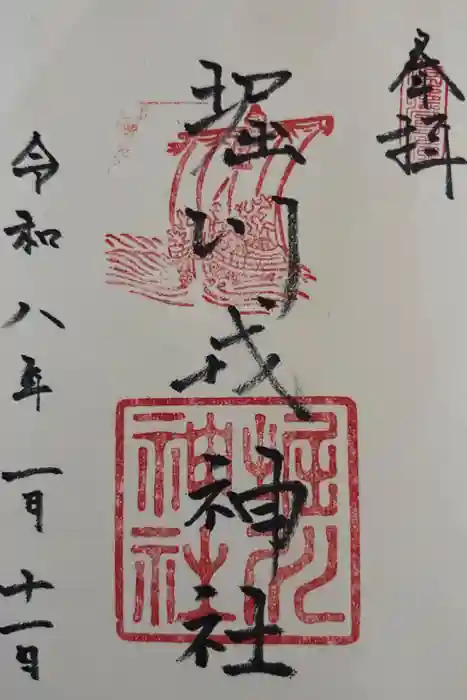 奉拝
堀川戎神社
堀川
神社
令和八年一月十一日